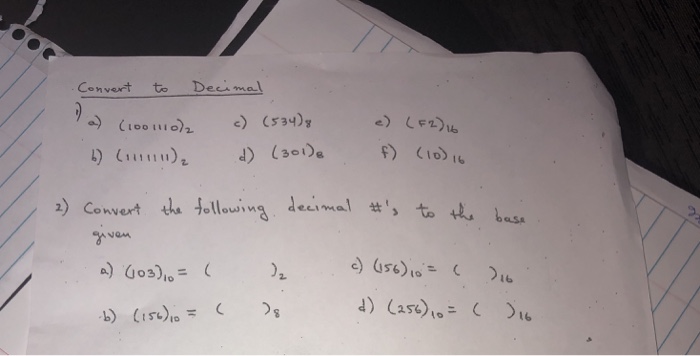 Convert to Decimal
1)
a) (1001110)2 c) (534)8 e) (F2)16
b) (1111111)2 d) (301)8 f) (10)16
2) Convert the following decimal #'s to the base
given
a) (103)10 = ( )2 c) (156)10 = ( )16
b) (156)10 = ( )8 d) (256)10 = ( )16